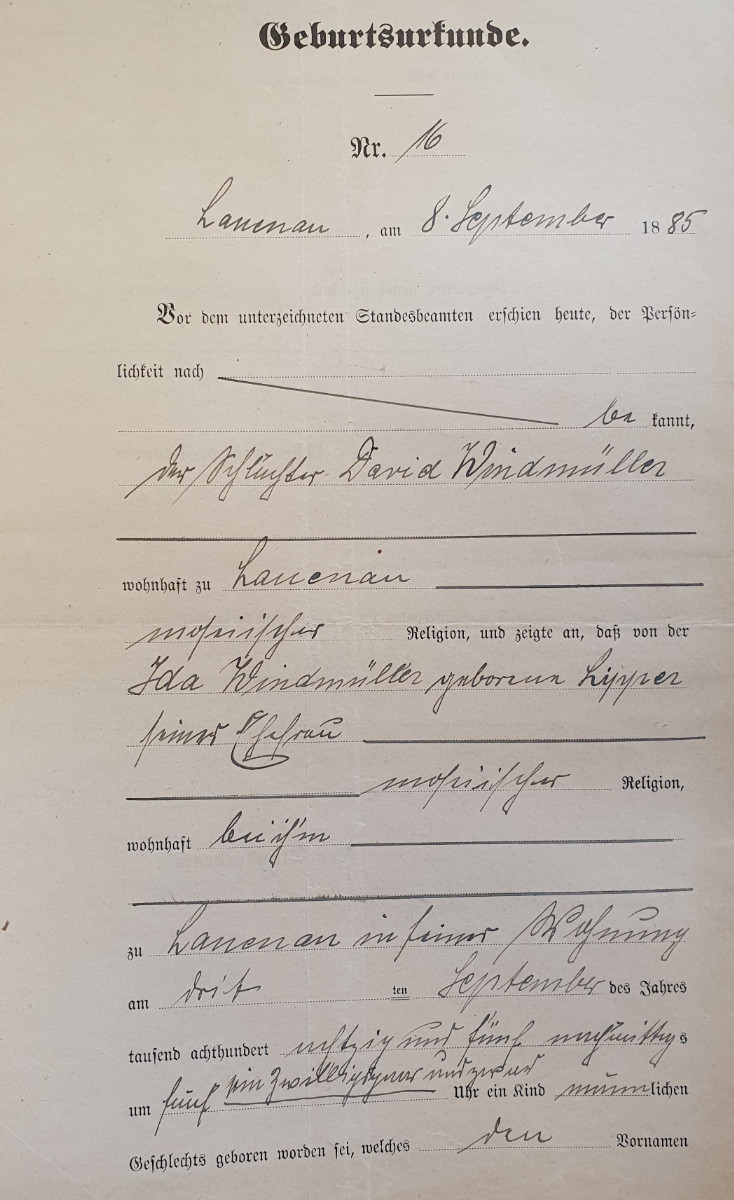 Geburtsurkunde.
Nr. 16
Lauenau, am 8. September 1885
Vor dem unterzeichneten Standesbeamten erschien heute, der Persön-
lichkeit nach
be kannt,
der Schlachter David Windmüller
wohnhaft zu Lauenau
mosaischer Religion, und zeigte an, daß von der
Ida Windmüller geborene Lipper
seiner Ehefrau
mosaischer Religion,
wohnhaft bei ihm
zu Lauenau in seiner Wohnung
am drit ten September des Jahres
tausend achthundert achtzig und fünf nachmittags
um fünf ein Zwillingspaar und zwar Uhr ein Kind männlichen
Geschlechts geboren worden sei, welches den Vornamen